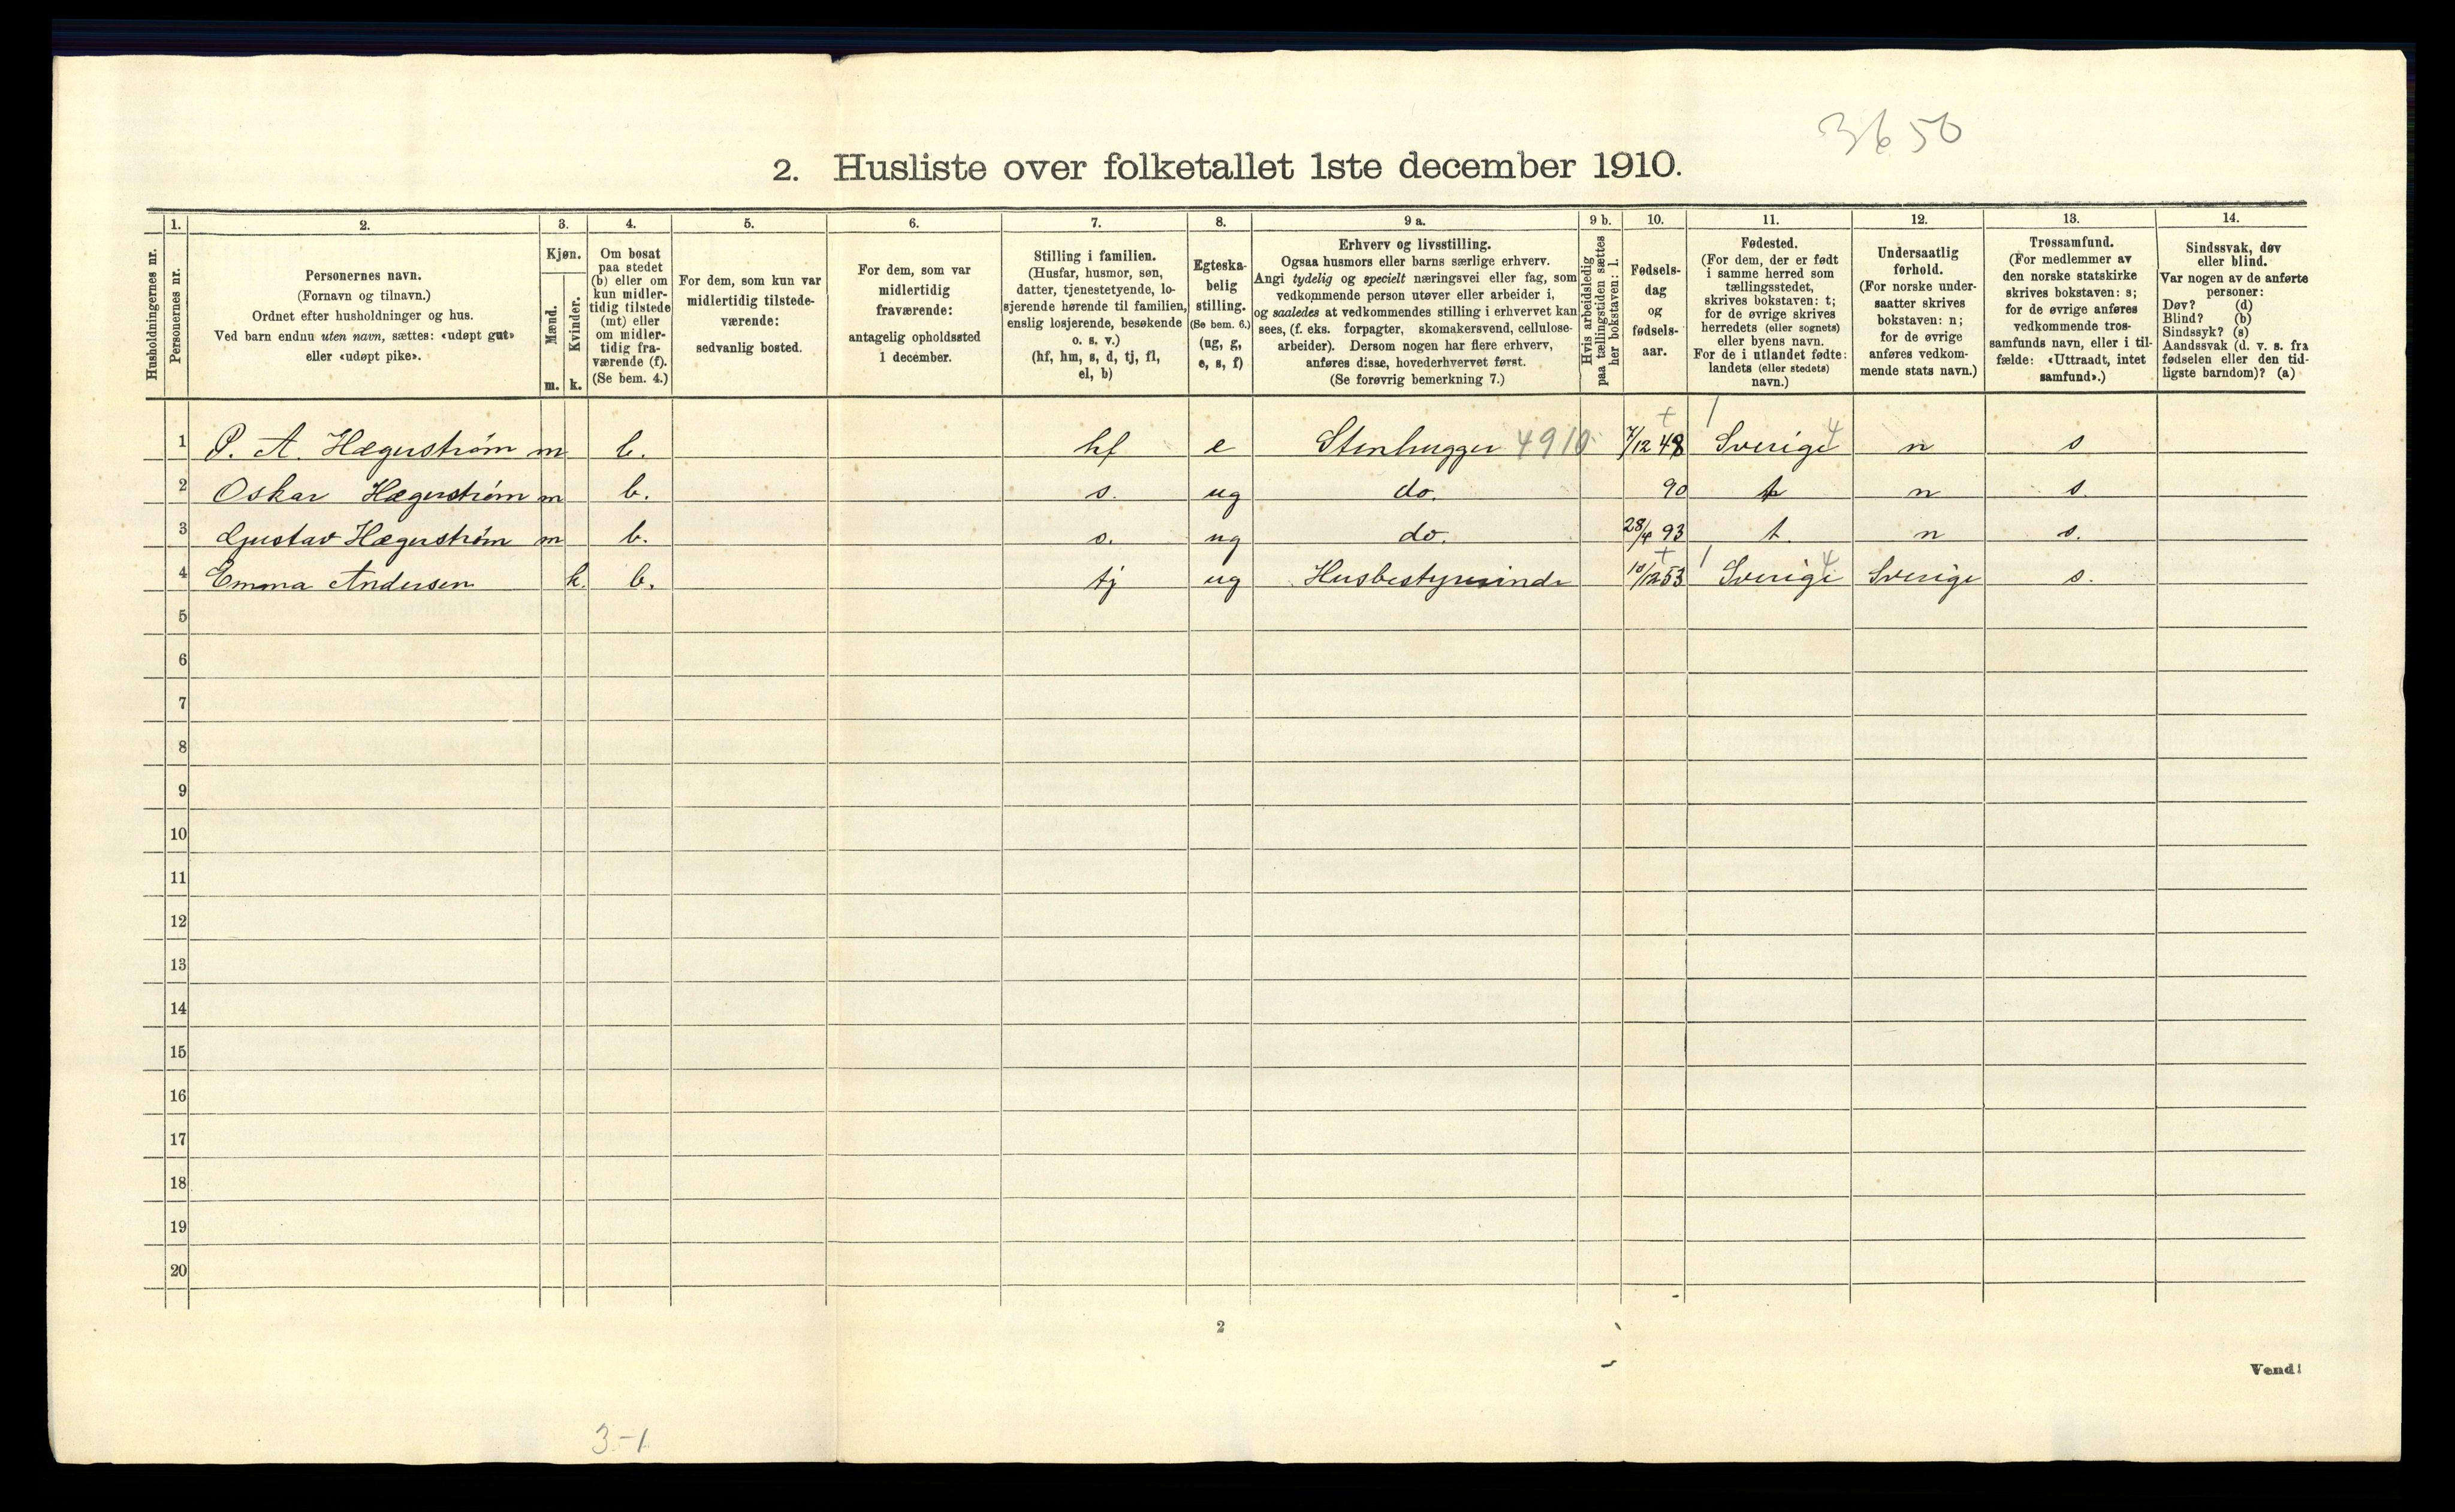 3650
2. Husliste over folketallet 1ste december 1910.
Husholdningernes nr.
1.
Personernes nr.
2.
Personernes navn.
(Fornavn og tilnavn.)
Ordnet efter husholdninger og hus.
Ved barn endnu uten navn, sættes: «udøpt gut»
eller «udøpt pike».
3.
Kjøn.
Mænd.
Kvinder.
m.
k.
4.
Om bosat
paa stedet
(b) eller om
kun midler-
tidig tilstede
(mt) eller
om midler-
tidig fra-
værende (f).
(Se bem. 4.)
5.
For dem, som kun var
midlertidig tilstede-
værende:
sedvanlig bosted.
6.
For dem, som var
midlertidig
fraværende:
antagelig opholdssted
1 december.
7.
Stilling i familien.
(Husfar, husmor, søn,
datter, tjenestetyende, lo-
sjerende hørende til familien,
enslig losjerende, besøkende
o. s. v.)
(hf, hm, s, d, tj, fl,
el, b)
8.
Egteska-
belig
stilling.
(Se bem. 6.)
(ug, g,
e, s, f)
9 a.
Erhverv og livsstilling.
Ogsaa husmors eller barns særlige erhverv.
Angi tydelig og specielt næringsvei eller fag, som
vedkommende person utøver eller arbeider i,
og saaledes at vedkommendes stilling i erhvervet kan
sees, (f. eks. forpagter, skomakersvend, cellulose-
arbeider). Dersom nogen har flere erhverv,
anføres disse, hovederhvervet først.
(Se forøvrig bemerkning 7.)
9 b.
Hvis arbeidsledig
paa tællingstiden sættes
her bokstaven: l.
10.
Fødsels-
dag
og
fødsels-
aar.
11.
Fødested.
(For dem, der er født
i samme herred som
tællingsstedet,
skrives bokstaven: t;
for de øvrige skrives
herredets (eller sognets)
eller byens navn.
For de i utlandet fødte:
landets (eller stedets)
navn.)
12.
Undersaatlig
forhold.
(For norske under-
saatter skrives
bokstaven: n;
for de øvrige
anføres vedkom-
mende stats navn.)
13.
Trossamfund.
(For medlemmer av
den norske statskirke
skrives bokstaven: s;
for de øvrige anføres
vedkommende tros-
samfunds navn, eller i til-
fælde: «Uttraadt, intet
samfund».)
14.
Sindssvak, døv
eller blind.
Var nogen av de anførte
personer:
Døv? (d)
Blind? (b)
Sindssyk? (s)
Aandssvak (d. v. s. fra
fødselen eller den tid-
ligste barndom)? (a)
1 P. A. Hægerstrøm m b. hf e Stenhugger 4910 7/12 48 + 1 Sverige 4 n s
2 Oskar Hægerstrøm m b. s. ug do. 90 t n s.
3 Gustav Hægerstrøm m b. s. ug do. 28/4 93 t. n s.
4 Emma Andersen k. b. tj ug Husbestyrerinde 10/12 53 + 1 Sverige 4 Sverige s.
5
6
7
8
9
10
11
12
13
14
15
16
17
18
19
20
2
Vend!
3-1